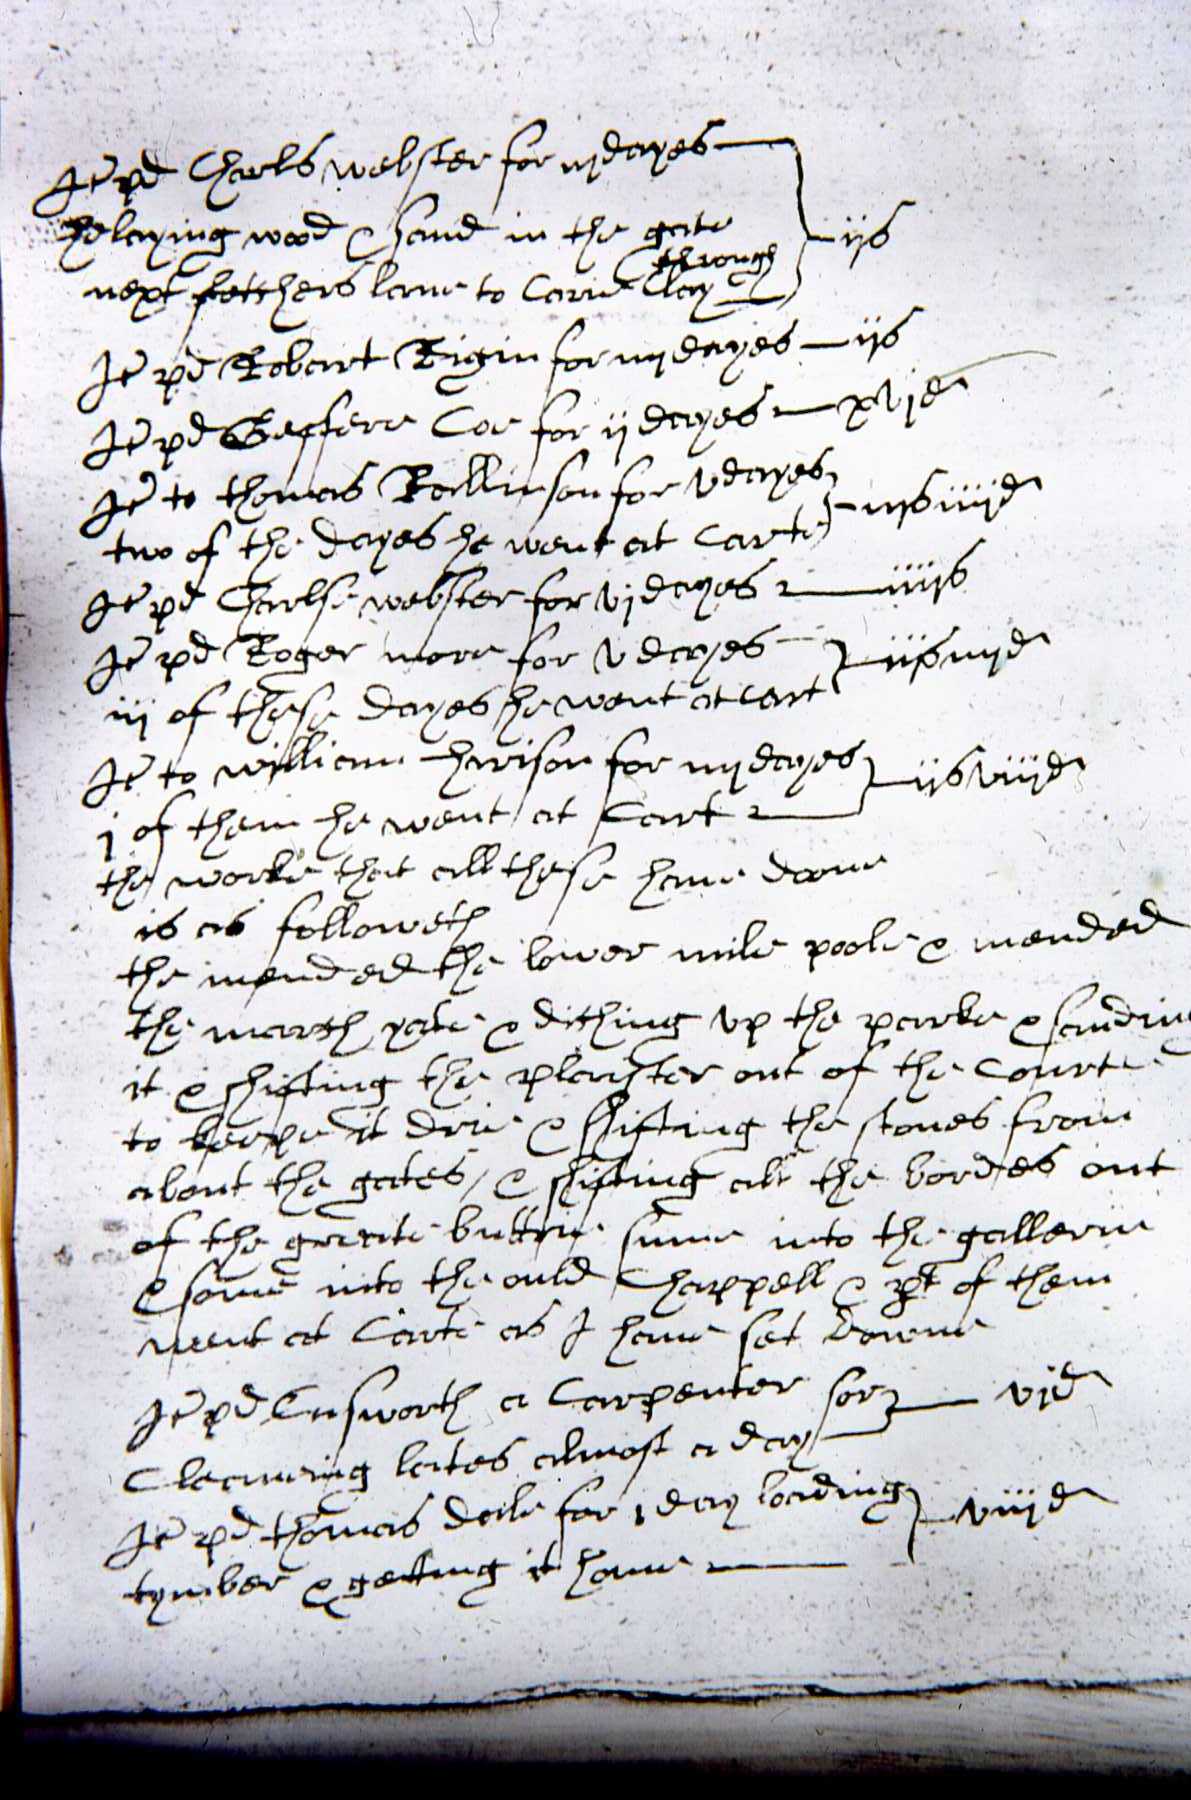 It pd Charls webster for iij dayes
he laying wood & sand in the gate — ijs
through
next fetchers lane to Carie Clay
It pd Robart Rigin for iiij dayes — ijs
It pd Geffere Coe for ij dayes — xvjd
It to thomas Rallinson for v dayes
two of the dayes he went at Carte — iijs iiijd
It pd Charlse webster for vj dayes — iiijs
It pd Roger more for v dayes — iijs iiijd
iij of these dayes he went at Cart
It to william harison for iiij dayes — ijs viijd
j of them he went at Cart
the worke that all these have doone
is as followeth
the mended the lower mile poole & mended
the marsh yate & diching vp the parke & sanding
it & shifting the plaister out of the Courte
to keepe it drie & shifting the stones from
about the gates, & shifting all the bordes out
of the greate buttrie sume into the gallerie
& some into the ould Chappell & pt of them
went at Carte as I have set downe
It pd Cusworth a Carpenter for — vjd
Cleaueing lates almost a day
It pd thomas dale for 1 day loading — viijd
tymber & getting it home